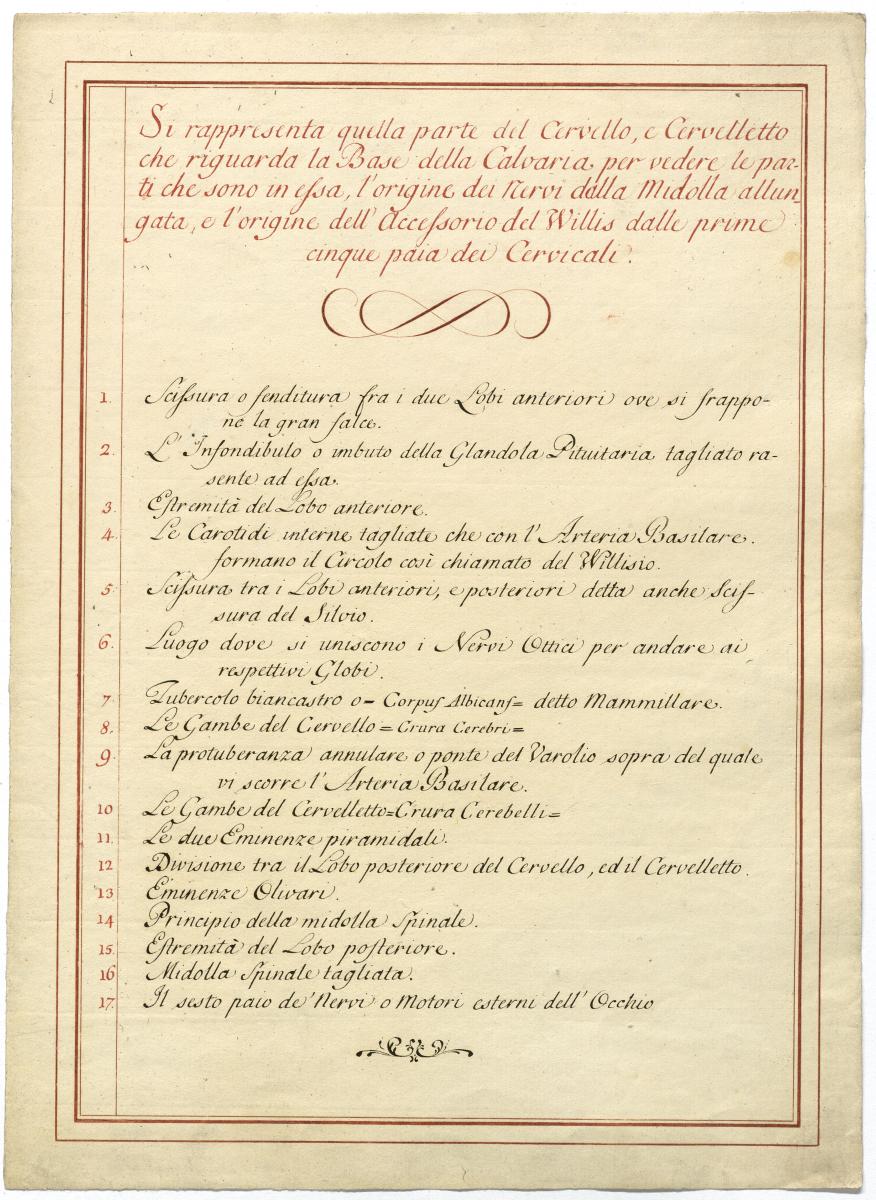 Si rappresenta quella parte del Cervello, e Cervelletto
che riguarda la Base della Calvaria, per vedere le par-
ti che sono in eſsa, l'origine dei Nervi dalla Midolla allun-
gata, e l'origine dell'Acceſsorio del Willis dalle prime
cinque paia dei Cervicali.
1. Sciſsura o fenditura fra i due Lobi anteriori ove si frappo-
ne la gran falce.
2. L'Infondibulo o imbuto della Glandola Pituitaria tagliato ra-
sente ad eſsa.
3. Eſtremità del Lobo anteriore.
4. Le Carotidi interne tagliate che con l'Arteria Basilare.
formano il Circolo così chiamato del Willisio.
5. Sciſsura tra i Lobi anteriori, e posteriori detta anche Sciſ-
sura del Silvio.
6. Luogo dove si uniscono i Nervi Ottici per andare ai
respettivi Globi.
7. Tubercolo biancastro o= Corpuſ Albicanſ= detto Mammillare.
8. Le Gambe del Cervello=Crura Cerebri=
9. La protuberanza annulare o ponte del Varolio sopra del quale
vi scorre l'Arteria Basilare.
10 Le Gambe del Cervelletto=Crura Cerebelli=
11. Le due Eminenze piramidali.
12 Divisione tra il Lobo posteriore del Cervello, ed il Cervelletto.
13 Eminenze Olivari.
14 Principio della midolla Spinale.
15. Eſtremità del Lobo poſteriore.
16 Midolla Spinale tagliata.
17. Il sesto paio de' Nervi o Motori esterni dell'Occhio